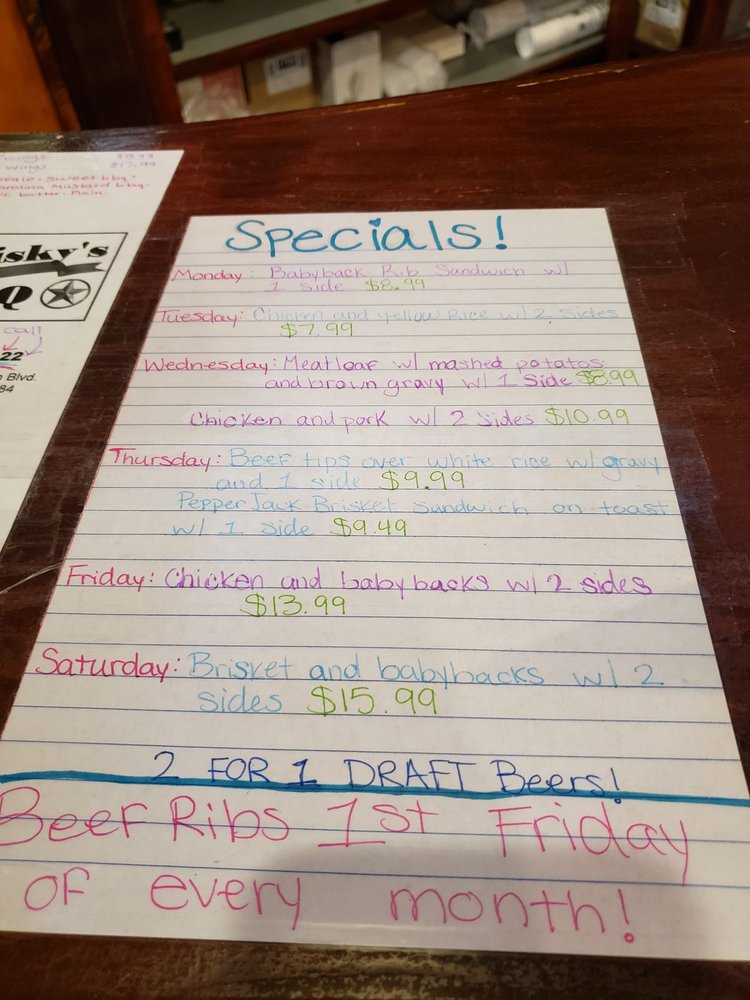 wings $8.99
wings $17.99
Sweet bbq.
Mustard bbq.
butter. Plain.
isky's
Q
call
22
Blvd.
84
Specials!
Monday: Babyback Rib Sandwich w/
1 side $8.99
Tuesday: Chicken and yellow Rice w/ 2 sides
$7.99
Wednesday: Meatloaf w/ mashed potatos
and brown gravy w/ 1 Side $8.99
Chicken and pork w/ 2 sides $10.99
Thursday: Beef tips over white rice w/ gravy
and 1 side $9.99
Pepper Jack Brisket Sandwich on toast
w/ 1 side $9.49
Friday: Chicken and babybacks w/ 2 sides
$13.99
Saturday: Brisket and babybacks w/ 2
sides $15.99
2 FOR 1 DRAFT Beers!
Beef Ribs 1st Friday
of every month!